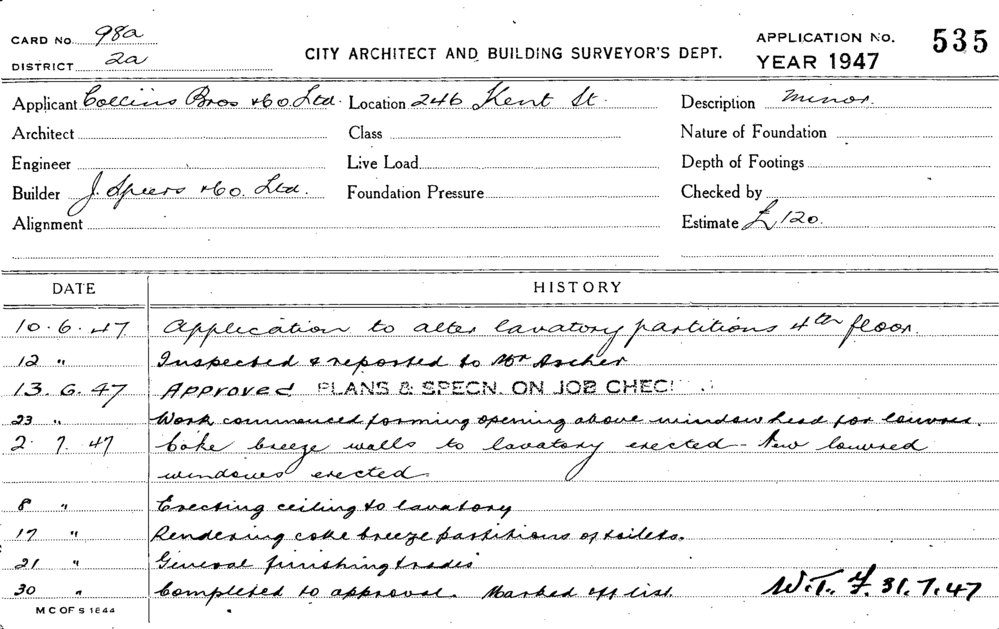 CARD No. 98a
DISTRICT 2a
CITY ARCHITECT AND BUILDING SURVEYOR'S DEPT.
APPLICATION No. 535
YEAR 1947
Applicant Collins Bros & Co. Ltd. Location 246 Kent St. Description Minor.
Architect Class Nature of Foundation
Engineer Live Load Depth of Footings
Builder J. Speers & Co. Ltd. Foundation Pressure Checked by
Alignment Estimate £120.
DATE HISTORY
10.6.47 Application to alter lavatory partitions 4th floor.
12 " Inspected & reported to Mr Ascher
13.6.47 Approved PLANS & SPECN. ON JOB CHEC
23 " Work commenced forming opening above window head for louvres.
2.7.47 Coke breeze walls to lavatory erected - New louvred
windows erected.
8 " Erecting ceiling to lavatory
17 " Rendering coke breeze partitions of toilets.
21 " General finishing trades
30 " Completed to approval. Marked off list. W.T. 31.7.47
M C OF S 1844